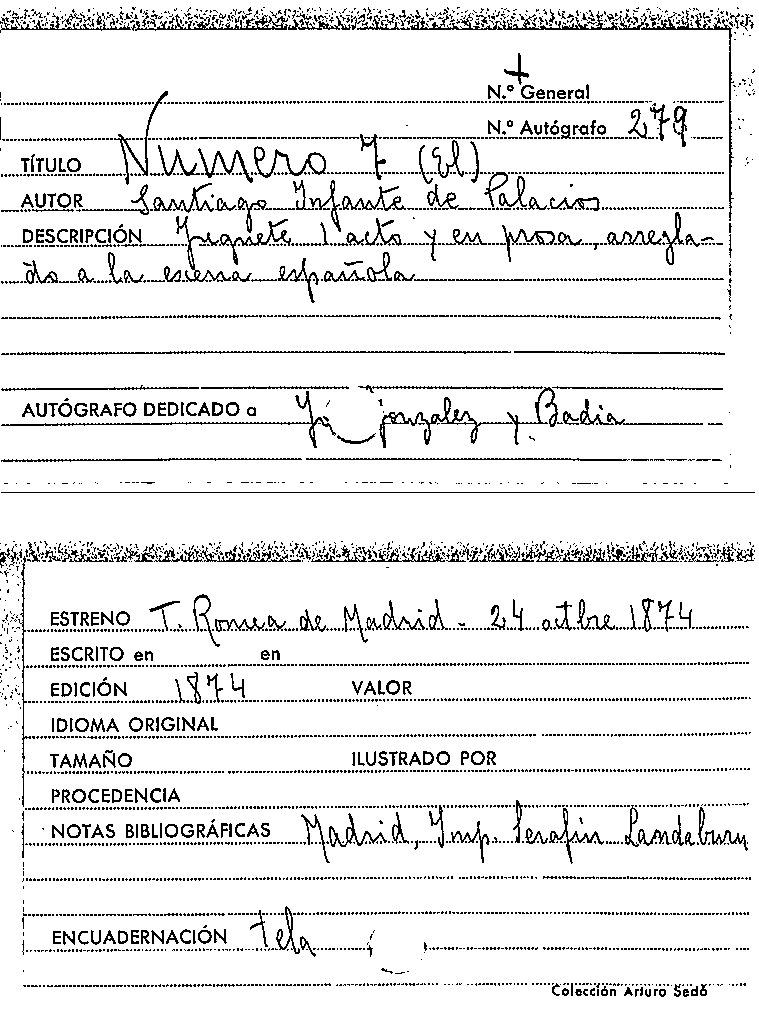 +
N.º General
N.º Autógrafo 279
TÍTULO Número 7 (El)
AUTOR Santiago Infante de Palacios
DESCRIPCIÓN Juguete 1 acto y en prosa, arregla-
do a la escena española
AUTÓGRAFO DEDICADO a Gonzalez y Badia
ESTRENO T. Romea de Madrid - 24 octbre 1874
ESCRITO en en
EDICIÓN 1874 VALOR
IDIOMA ORIGINAL
TAMAÑO ILUSTRADO POR
PROCEDENCIA
NOTAS BIBLIOGRÁFICAS Madrid, Imp. Serafin Landaburu
ENCUADERNACIÓN tela
Colección Arturo Sedó